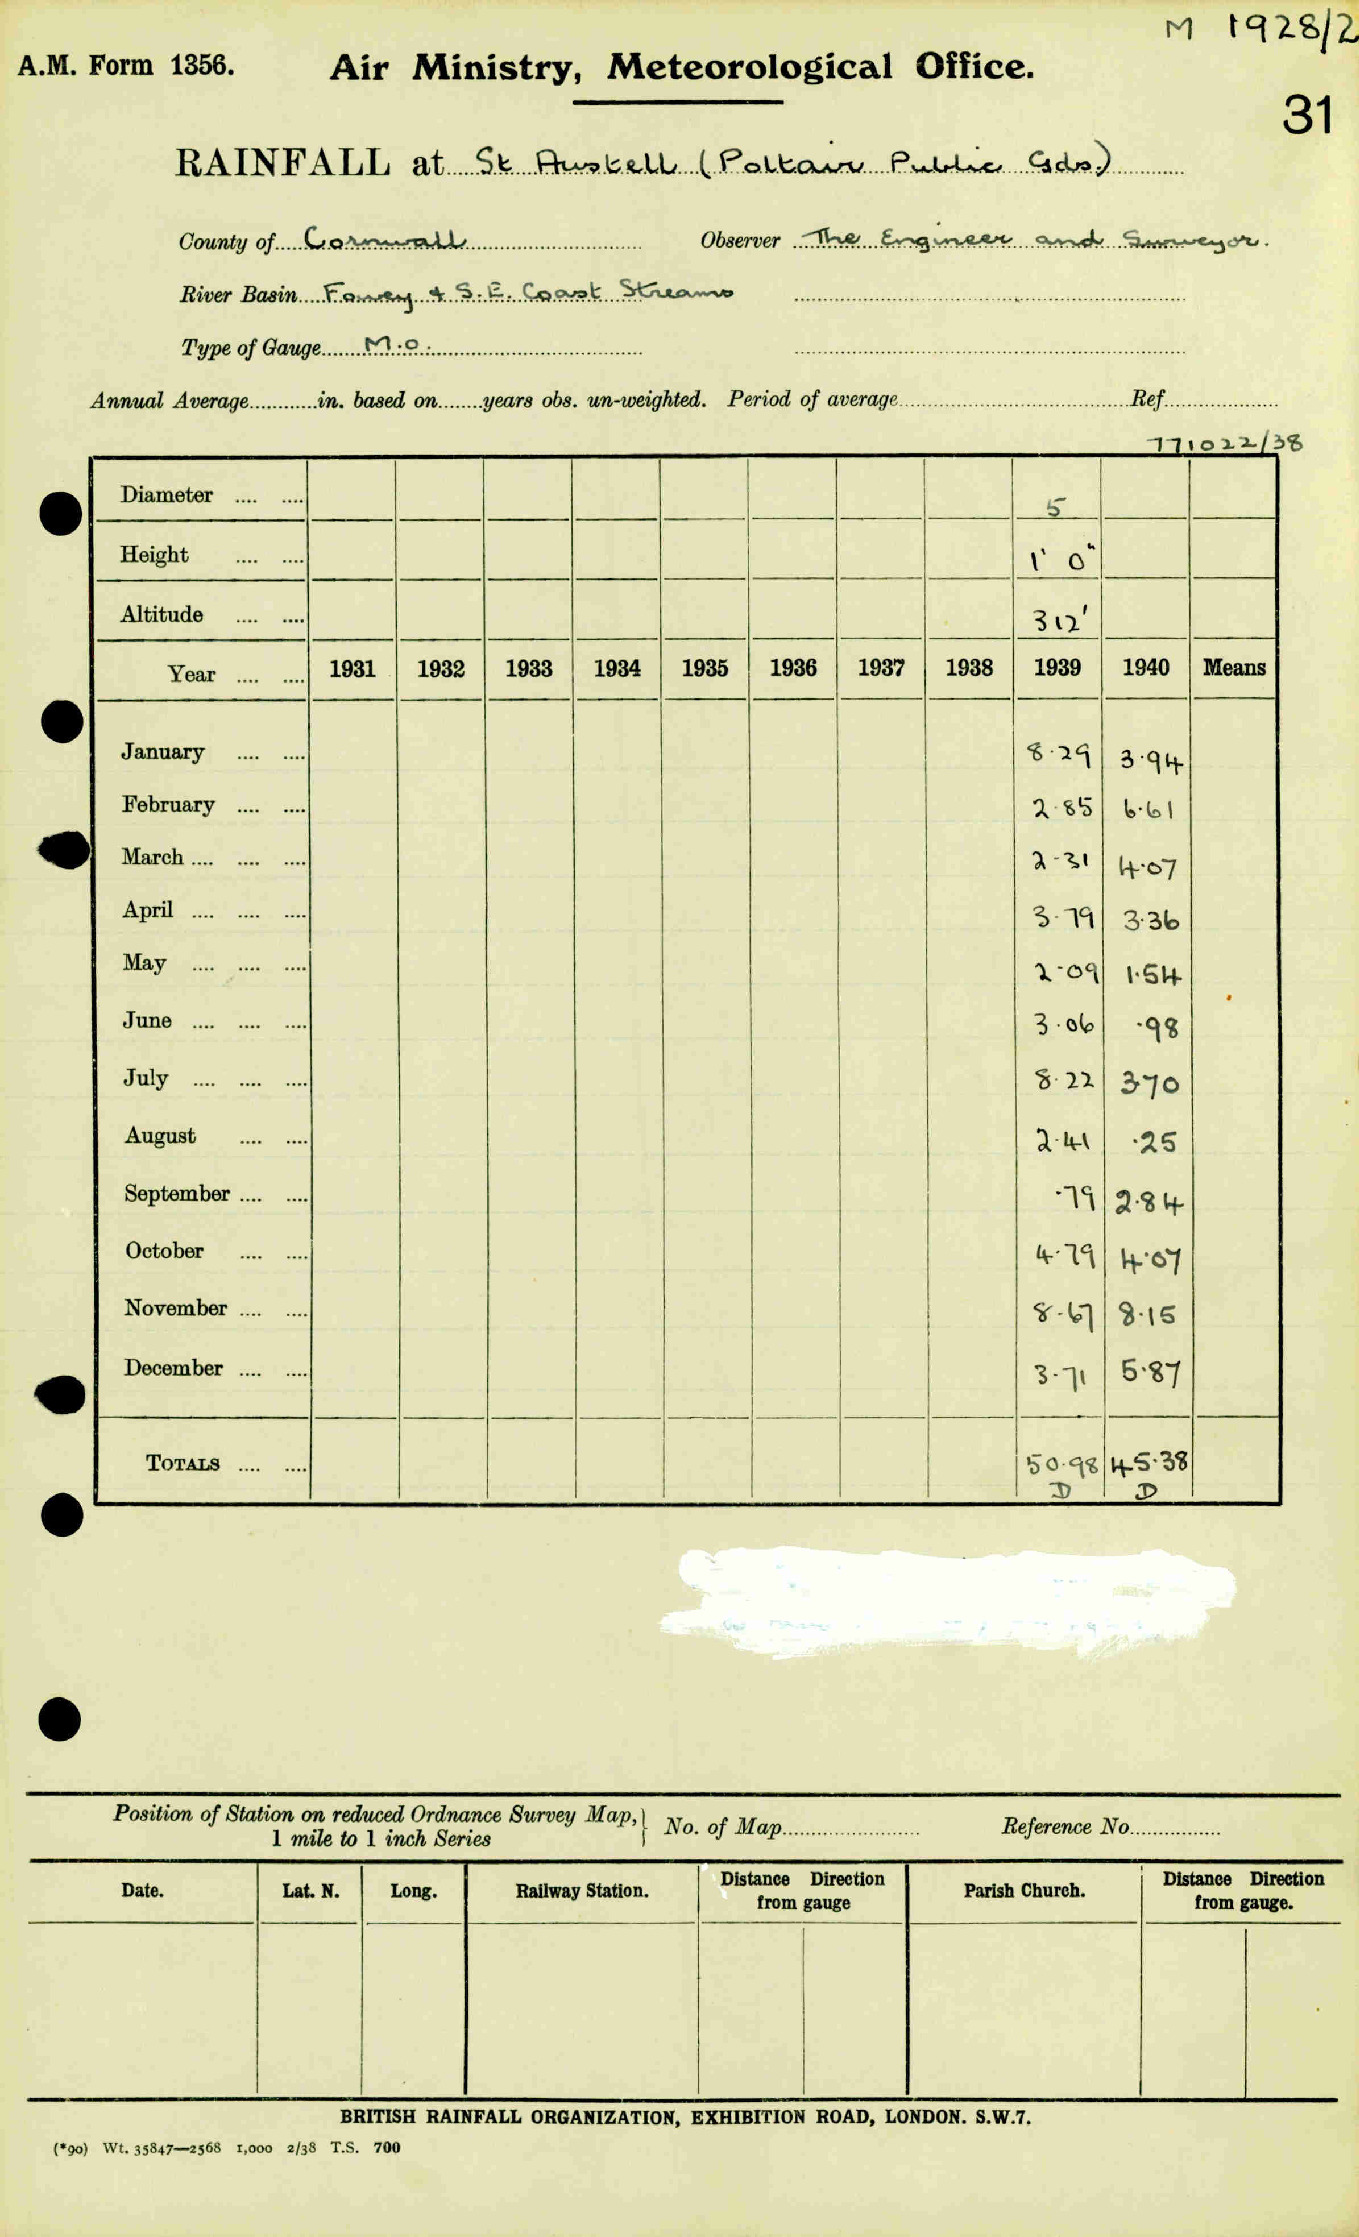 M 1928/2
A.M. Form 1356. Air Ministry, Meteorological Office.
31
RAINFALL at St Austell (Poltair Public Gdns.)
County of Cornwall Observer The Engineer and Surveyor.
River Basin Fowey & S.E. Coast Streams
Type of Gauge M.O.
Annual Average in. based on years obs. un-weighted. Period of average Ref
771022/38
Diameter 5
Height 1' 0"
Altitude 312'
Year 1931 1932 1933 1934 1935 1936 1937 1938 1939 1940 Means
January 8.29 3.94
February 2.85 6.61
March 2.31 4.07
April 3.79 3.36
May 2.09 1.54
June 3.06 .98
July 8.22 3.70
August 2.41 .25
September .79 2.84
October 4.79 4.07
November 8.67 8.15
December 3.71 5.87
TOTALS 50.98 45.38
D D
Position of Station on reduced Ordnance Survey Map, No. of Map Reference No.
1 mile to 1 inch Series
Date. Lat. N. Long. Railway Station. Distance Direction from gauge Parish Church. Distance Direction from gauge.
BRITISH RAINFALL ORGANIZATION, EXHIBITION ROAD, LONDON. S.W.7.
(*90) Wt. 35847—2568 1,000 2/38 T.S. 700